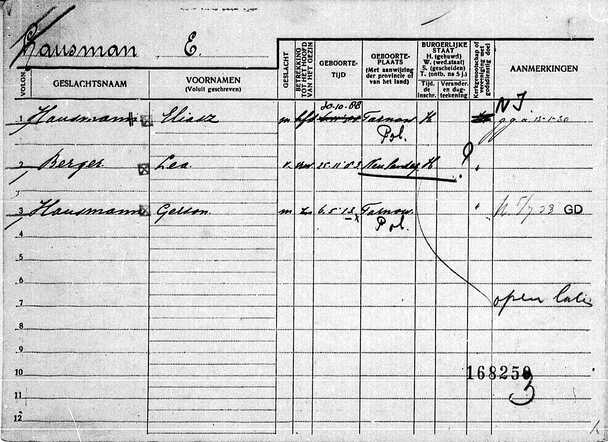 Hausman E.
VOLGN.
GESLACHTSNAAM
VOORNAMEN
(Voluit geschreven)
GESLACHT
BETREKKING TOT HET HOOFD VAN HET GEZIN
GEBOORTE-
TIJD
GEBOORTE-
PLAATS
(Met aanwijzing
der provincie of
van het land)
BURGERLIJKE
STAAT
H. (gehuwd)
W. (wed.staat)
S. (gescheiden)
T. (ontb. na 5 j.)
Tijd.
de
inschr.
Verander.
en dag-
teekening
AANMERKINGEN
NI
20.10.88
1 Hausmann Eliasz m hfd Tarnow H
Pol.
2 Berger Lea v. 25.11.8 H "
3 Hausmann Gerson m zn 6.5.13 Tarnow " GD
Pol.
4
5
6
7 open
8
9
10 168250
3
11
12